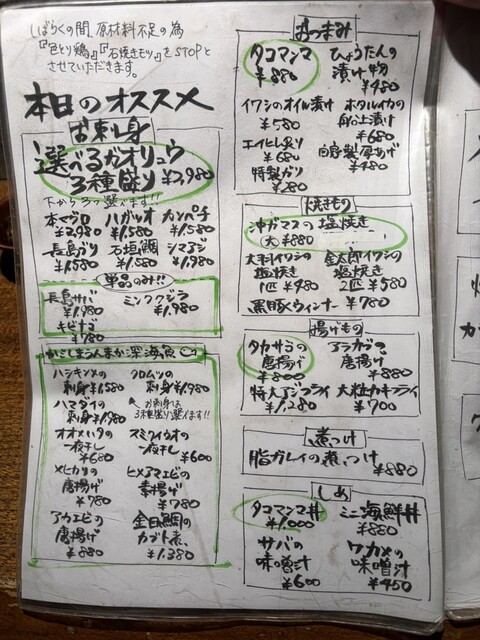 しばらくの間、原材料不足の為
『色とり鶏』『石焼きモツ』をSTOPと
させていただきます。
本日のオススメ
お刺し身
選べるガオリュウ
3種盛り ¥2,980
下から3つ選べます!!
本マグロ ハガツオ カンパチ
¥2,980 ¥1,580 ¥1,580
長島ぶり 石垣鯛 シマアジ
¥1,580 ¥1,580 ¥1,980
単品のみ!!
長島サバ ミンククジラ
¥1,980 ¥1,980
キビナゴ
¥780
かごしまうんまか深海魚
ハシキンメの クロムツの
刺身¥1,580 刺身¥1,980
ハマダイの お刺身は
刺身¥1,980 3種盛り選べます!!
オオメハタの スミクイウオの
一夜干し 一夜干し
¥680 ¥600
メヒカリの ヒメアマエビの
唐揚げ 素揚げ
¥780 ¥780
アカエビの 金目鯛の
唐揚げ カブト煮
¥880 ¥1,380
おつまみ
タコマンマ ひょうたんの
¥880 漬け物
¥480
イワシのオイル漬け ホタルイカの
¥580 船上漬け
エイヒレ炙り ¥680
¥680 自家製厚あげ
特製ガリ ¥480
¥280
焼きもの
沖ガマスの塩焼き
大 ¥880
大羽イワシの 金太郎イワシの
塩焼き 塩焼き
1匹 ¥480 2匹 ¥580
黒豚ウィンナー ¥780
揚げもの
タカサゴの アラカブの
唐揚げ 唐揚げ
¥800 ¥880
特大アジフライ 大粒カキフライ
¥1,280 ¥700
煮つけ
脂ガレイの煮つけ
¥880
しめ
タコマンマ丼 ミニ海鮮丼
¥1,000 ¥880
サバの ワカメの
味噌汁 味噌汁
¥600 ¥450